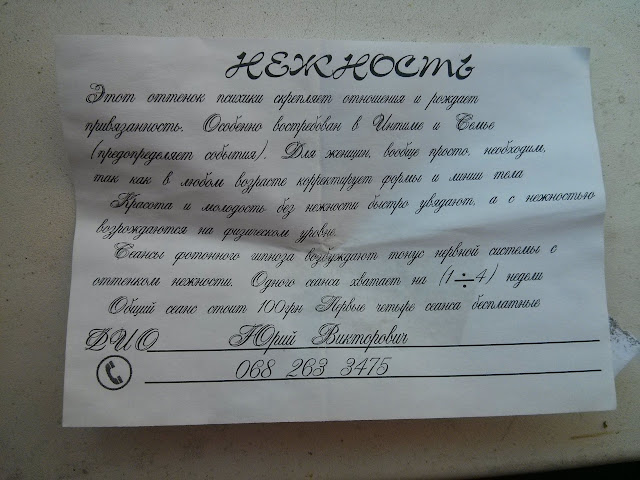 НЕЖНОСТЬ
Этот оттенок психики скрепляет отношения и рождает
привязанность. Особенно востребован в Интиме и Семье
(предопределяет события). Для женщин, вообще просто, необходим,
так как в любом возрасте корректирует формы и линии тела
Красота и молодость без нежности быстро увядают, а с нежностью
возрождаются на физическом уровне.
Сеансы фотонного гипноза возбуждают тонус нервной системы с
оттенком нежности. Одного сеанса хватает на (1÷4) недели
Общий сеанс стоит 100грн Первые четыре сеанса бесплатные
ФИО Юрий Викторович
068 263 3475